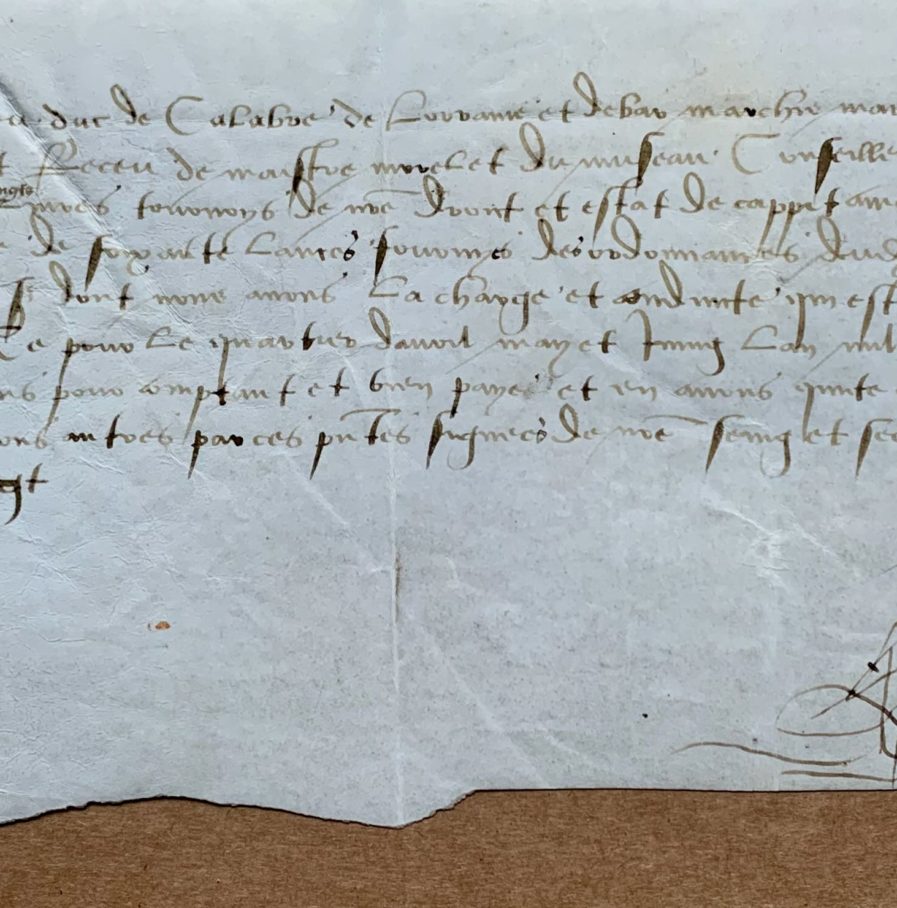 duc de Calabre de Lorraine et de bar marchis mar
Receu de maistre morelet du museau Conseille
livres tournoys de nre droit et estat de cappitaine
de soixante lances fournies des ordonnances dud
dont nous avons La charge et conduicte qui est
pour Le quartier davril may et Juing Lan mil
ns pour comptant et bien payé et en avons quicte
ons autres par ces pntes signees de nre seing et see